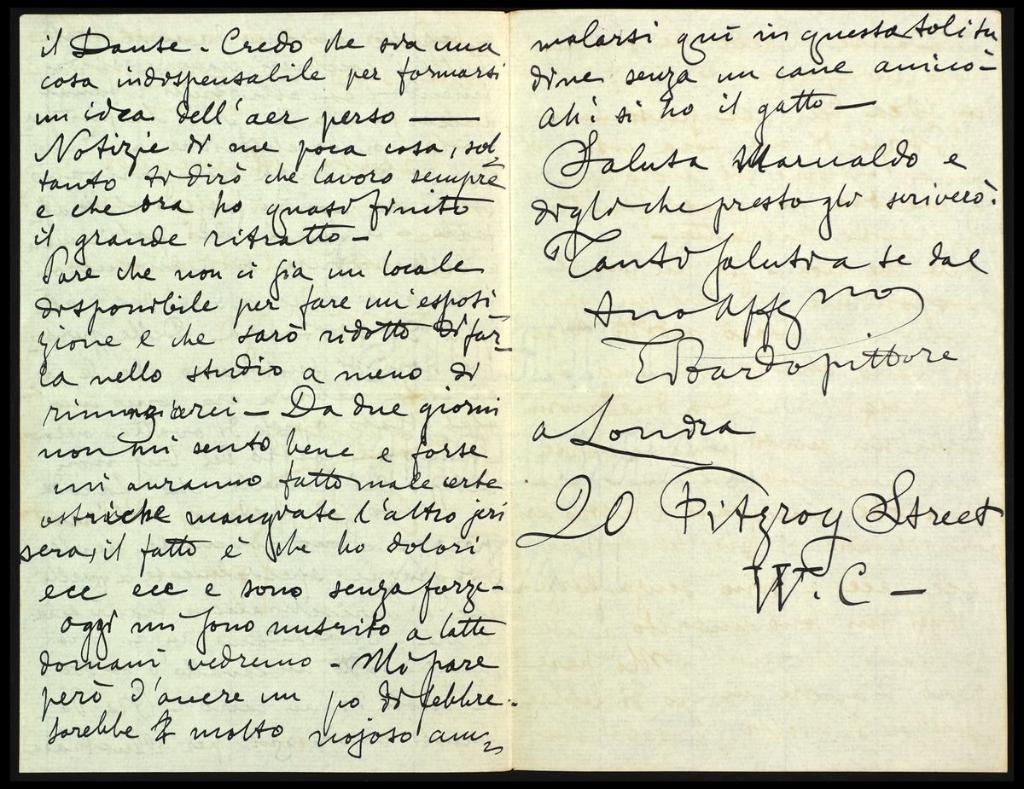 il Dante - Credo che sia una
cosa indispensabile per formarsi
un idea dell'aer perso —
Notizie di me poca cosa, sol
tanto ti dirò che lavoro sempre
e che ora ho quasi finito
il grande ritratto -
Pare che non ci sia un locale
disponibile per fare un'esposi
zione e che sarò ridotto di far-
la nello studio a meno di
rinunziarci - Da due giorni
non mi sento bene e forse
mi avranno fatto male certe
ostriche mangiate l'altro jeri
sera, il fatto è che ho dolori
ecc ecc e sono senza forze -
oggi mi sono nutrito a latte
domani vedremo - Mi pare
però d'avere un po di febbre.
sarebbe molto nojoso am-
malarsi quì in questa solitu
dine senza un cane amico -
Ah! si ho il gatto —
Saluta Marualdo e
digli che presto gli scriverò.
Tanti saluti a te dal
tuo affez mo
pittore
a Londra
20 Fitzroy Street
W. C -